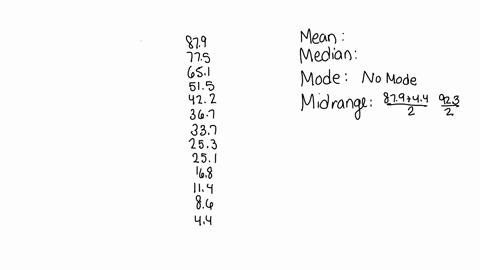 87.9
77.5
65.1
51.5
42.2
36.7
33.7
25.3
25.1
16.8
11.4
8.6
4.4
Mean:
Median:
Mode: No Mode
Midrange: 87.9+4.4/2 92.3/2